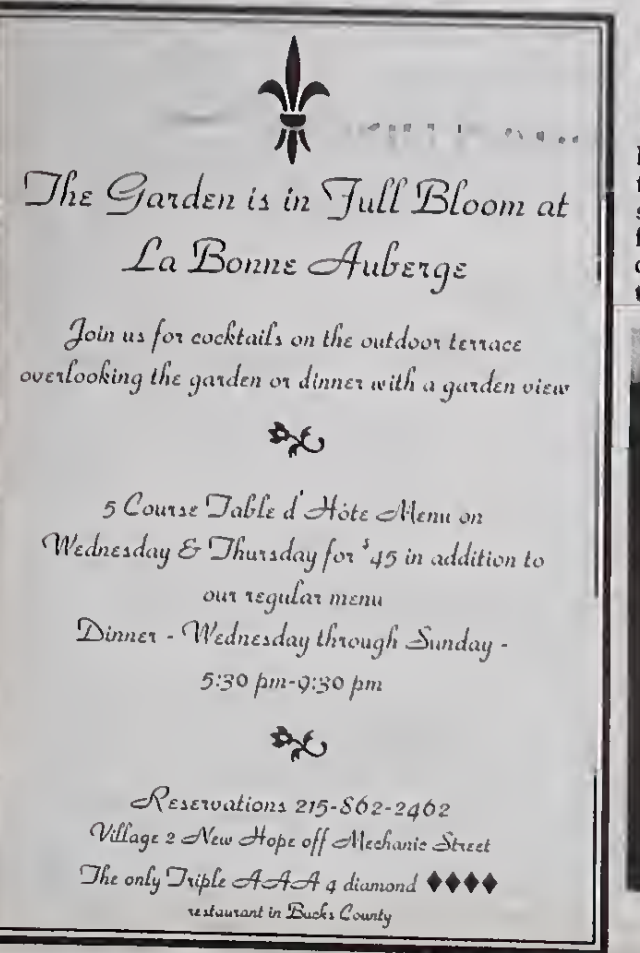 The Garden is in Full Bloom at
La Bonne Auberge
Join us for cocktails on the outdoor terrace
overlooking the garden or dinner with a garden view
5 Course Table d'Hôte Menu on
Wednesday & Thursday for $45 in addition to
our regular menu
Dinner - Wednesday through Sunday -
5:30 pm-9:30 pm
Reservations 215-862-2462
Village 2 New Hope off Mechanic Street
The only Triple AAA 4 diamond ♦♦♦♦
restaurant in Bucks County